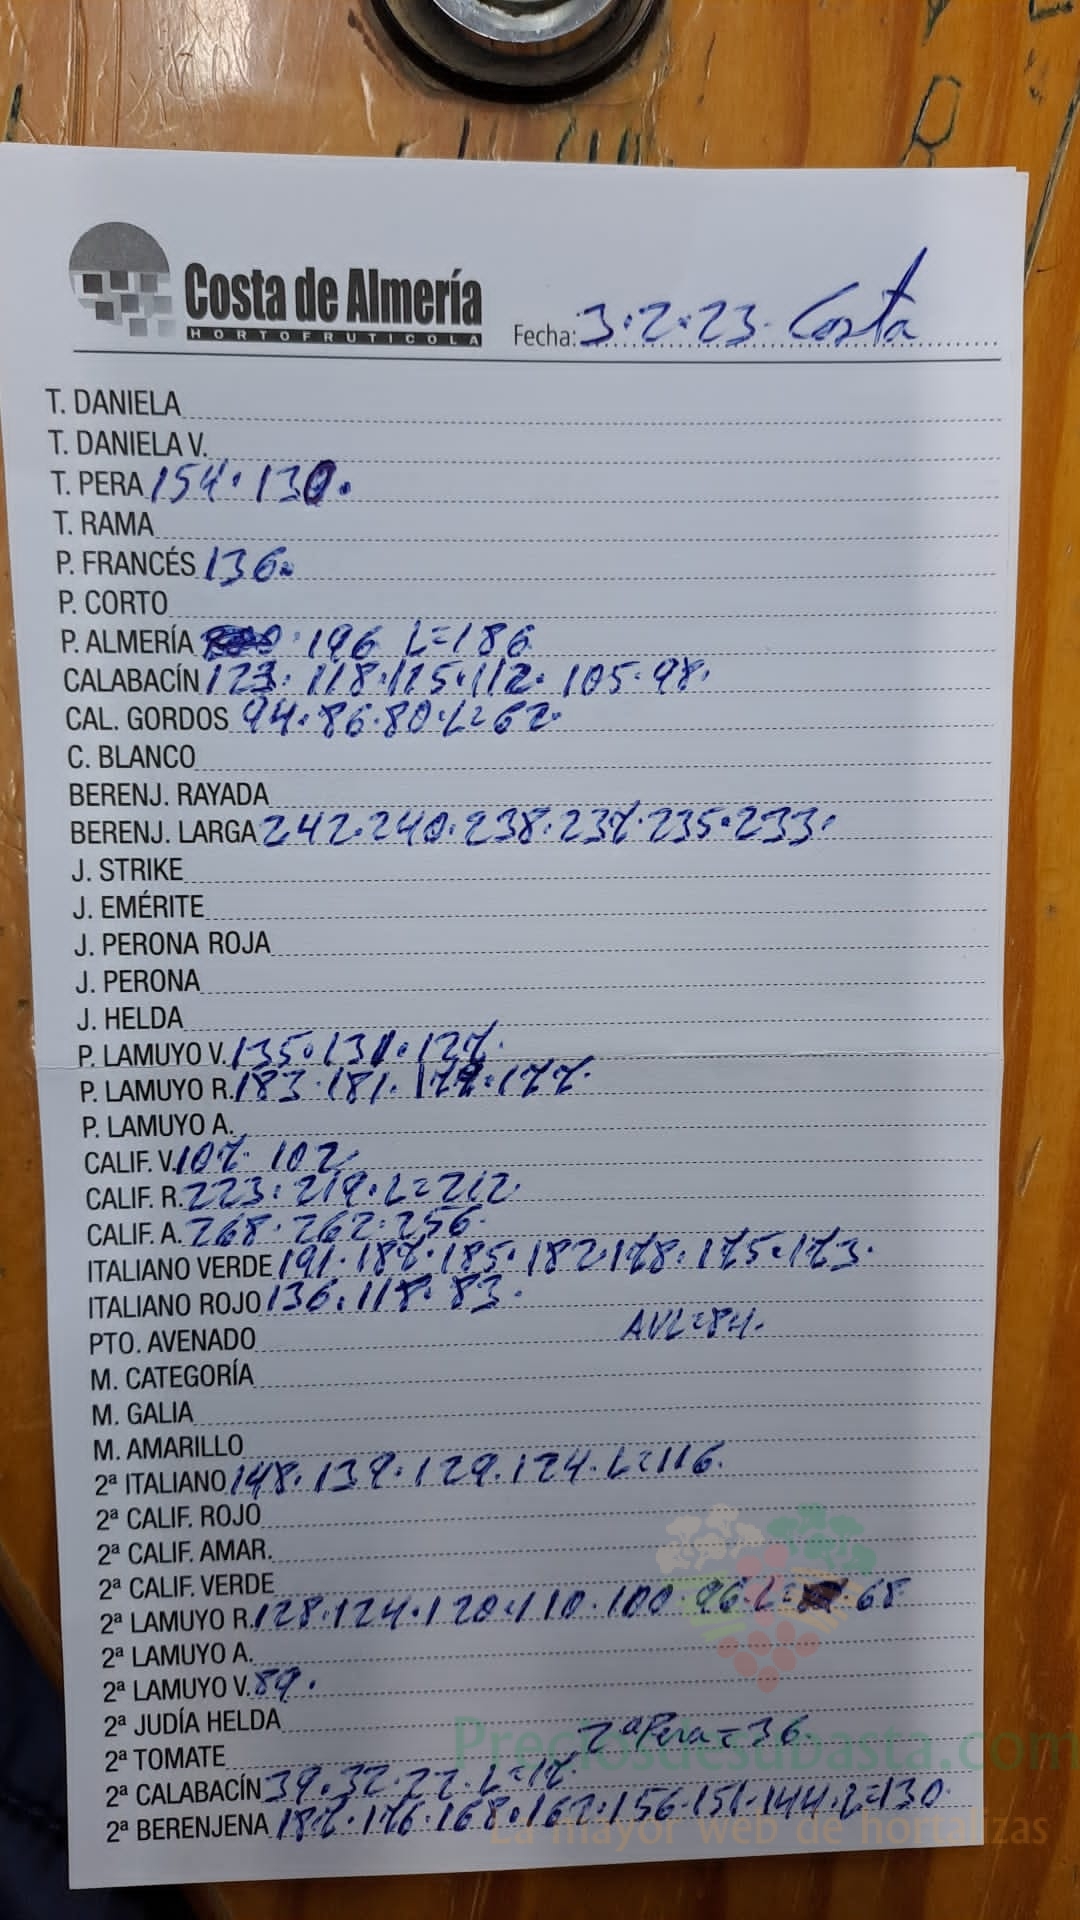 Costa de Almería
HORTOFRUTICOLA
Fecha: 3·2·23· Costa
T. DANIELA
T. DANIELA V.
T. PERA 154· 130.
T. RAMA
P. FRANCÉS 136.
P. CORTO
P. ALMERÍA · 196 L=186
CALABACÍN 123· 118·115·112· 105·98·
CAL. GORDOS 94·86·80·L=62·
C. BLANCO
BERENJ. RAYADA
BERENJ. LARGA 242·240·238·237·235·233·
J. STRIKE
J. EMÉRITE
J. PERONA ROJA
J. PERONA
J. HELDA
P. LAMUYO V. 135·131·127·
P. LAMUYO R. 183·181·179·177·
P. LAMUYO A.
CALIF. V. 107· 102·
CALIF. R. 223· 219·L=212·
CALIF. A. 268·262·256·
ITALIANO VERDE 191·187·185·182·178·175·173·
ITALIANO ROJO 136·118·83·
PTO. AVENADO AVL=84·
M. CATEGORÍA
M. GALIA
M. AMARILLO
2ª ITALIANO 148·139·129·124·L=116·
2ª CALIF. ROJO
2ª CALIF. AMAR.
2ª CALIF. VERDE
2ª LAMUYO R. 128·124·120·110·100·96·L= ·68
2ª LAMUYO A.
2ª LAMUYO V. 89·
2ª JUDÍA HELDA
2ª TOMATE 2ª Pera=36
2ª CALABACÍN 39·32·22·L=17
2ª BERENJENA 187·176·168·162·156·151·144·L=130·
Preciosdesubasta.com
La mayor web de hortalizas